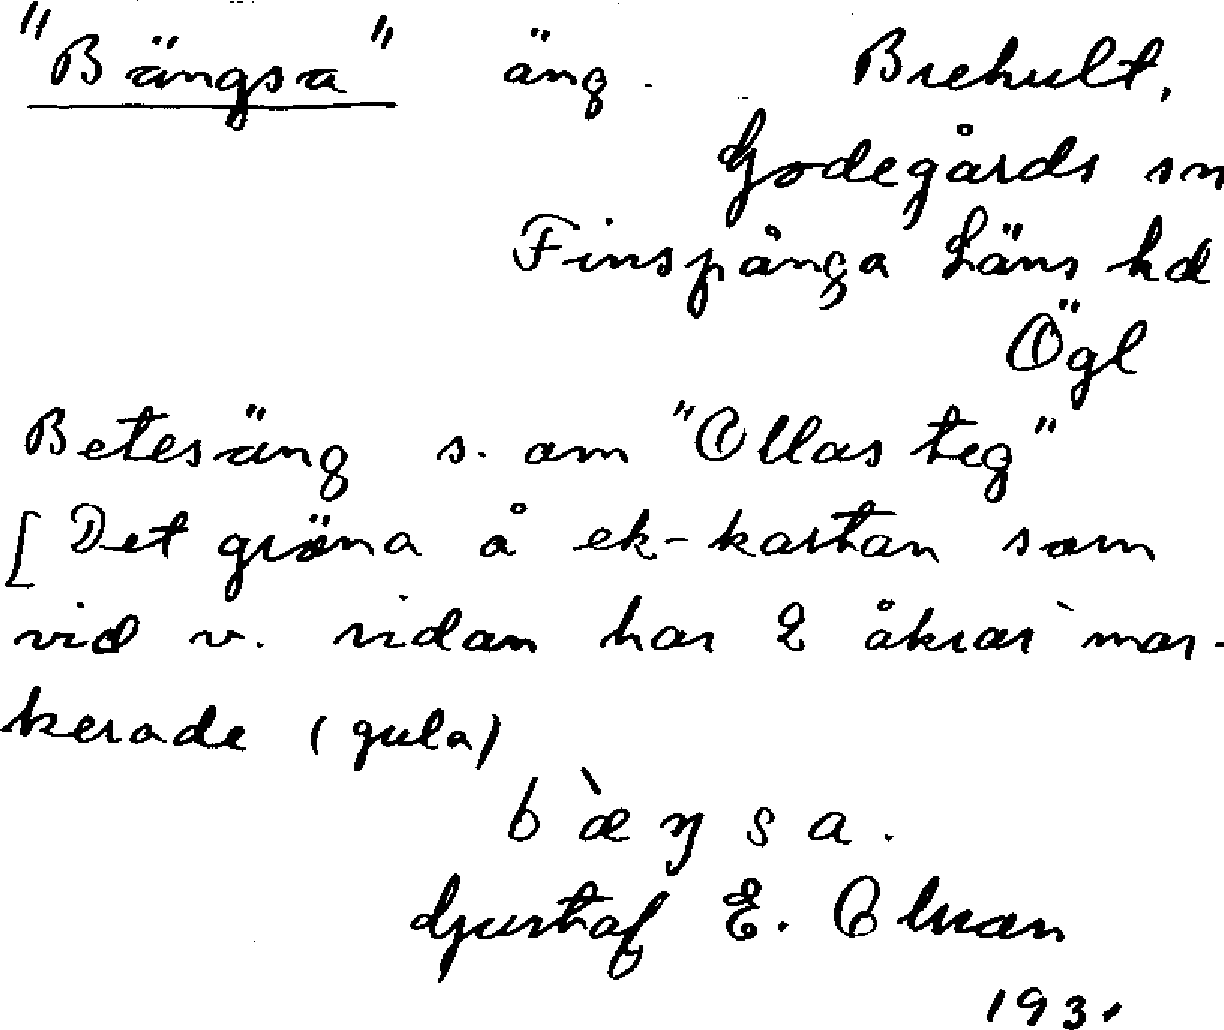 "Bängsa" äng. Brehult,
Godegårds sn
Finspånga läns hd
Ögl
Betesäng s. om "Ollas teg"
[Det gröna å ek-kartan som
vid v. sidan har 2 åkrar mar-
kerade (gula)
b`æŋsa.
Gustaf E. Olsson